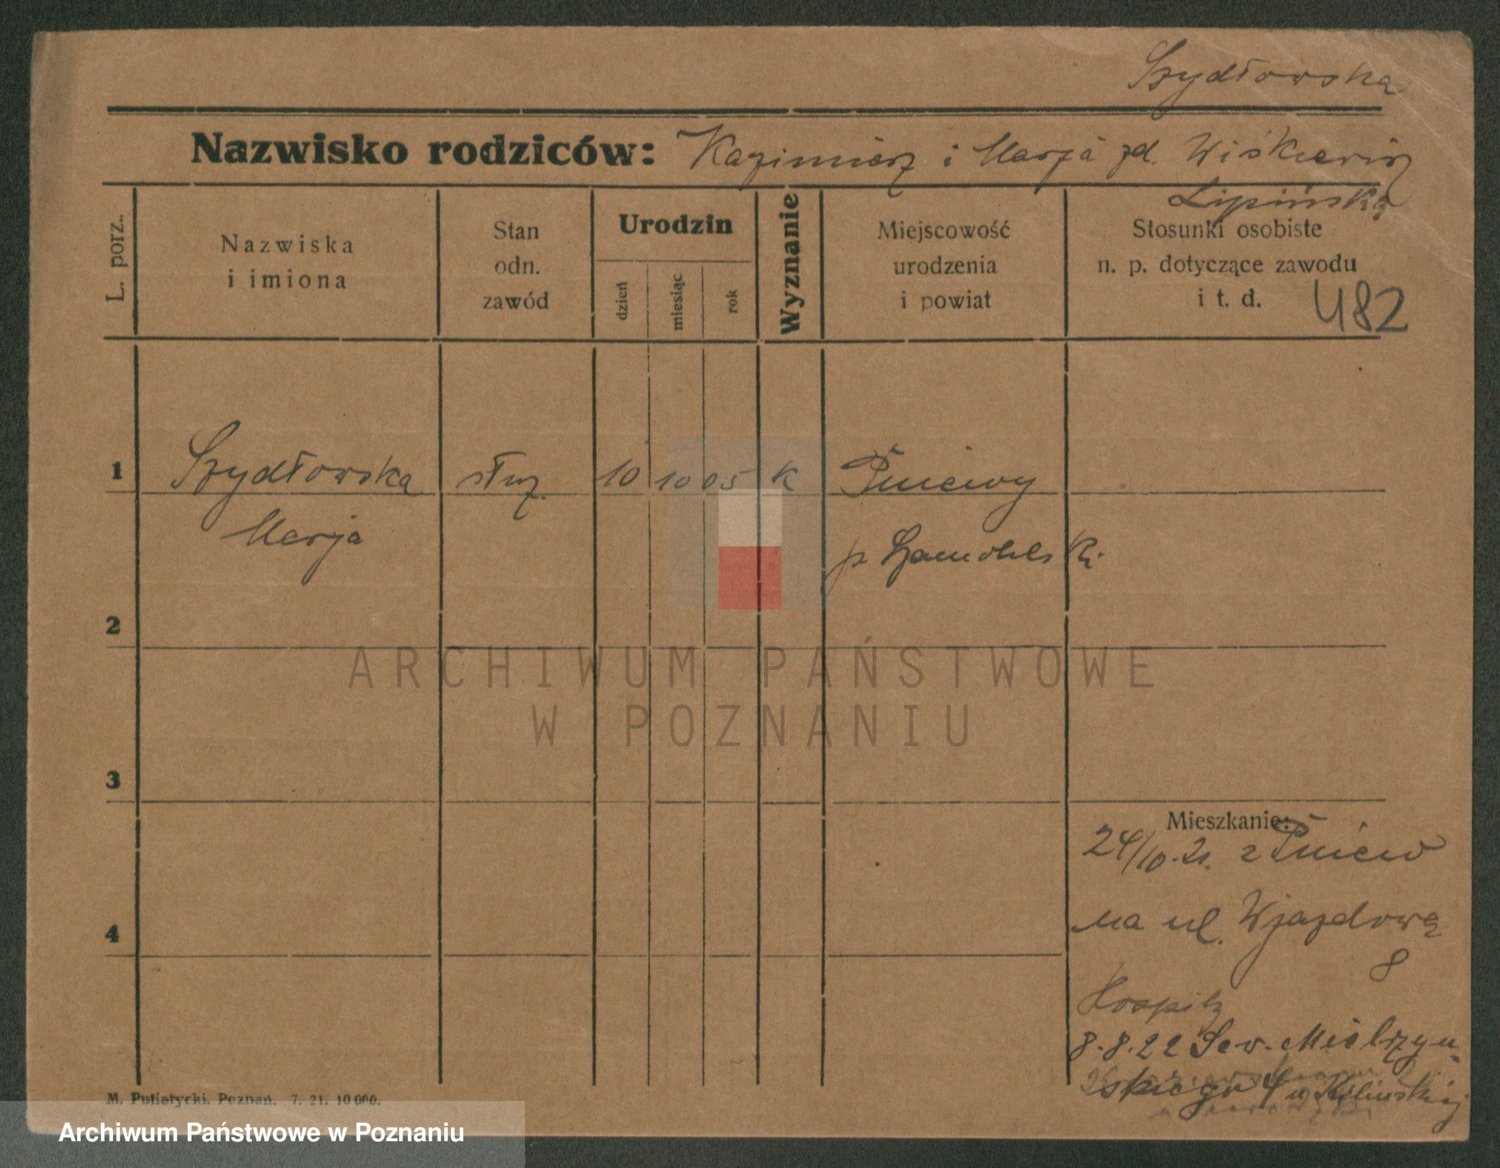 Szydłowska
Nazwisko rodziców: Kazimierz i Marja zd. Wiśkiewicz
Lipińska
L. porz.
Nazwiska
i imiona
Stan
odn.
zawód
Urodzin
dzień
miesiąc
rok
Wyznanie
Miejscowość
urodzenia
i powiat
Stosunki osobiste
n. p. dotyczące zawodu
i t. d. 482
1 Szydłowska służ 10 10 05 K Pniewy
Marja p Szamotulski
2
ARCHIWUM PAŃSTWOWE
W POZNANIU
3
Mieszkanie:
24/10.21. z Pniew
4
na ul. Wjazdową
8
Hospitz
8.8.22 Sew. Mielżyń-
skiego 4 u Kilińskiej
M. Putiatycki, Poznań. 7. 21. 10 000.
Archiwum Państwowe w Poznaniu